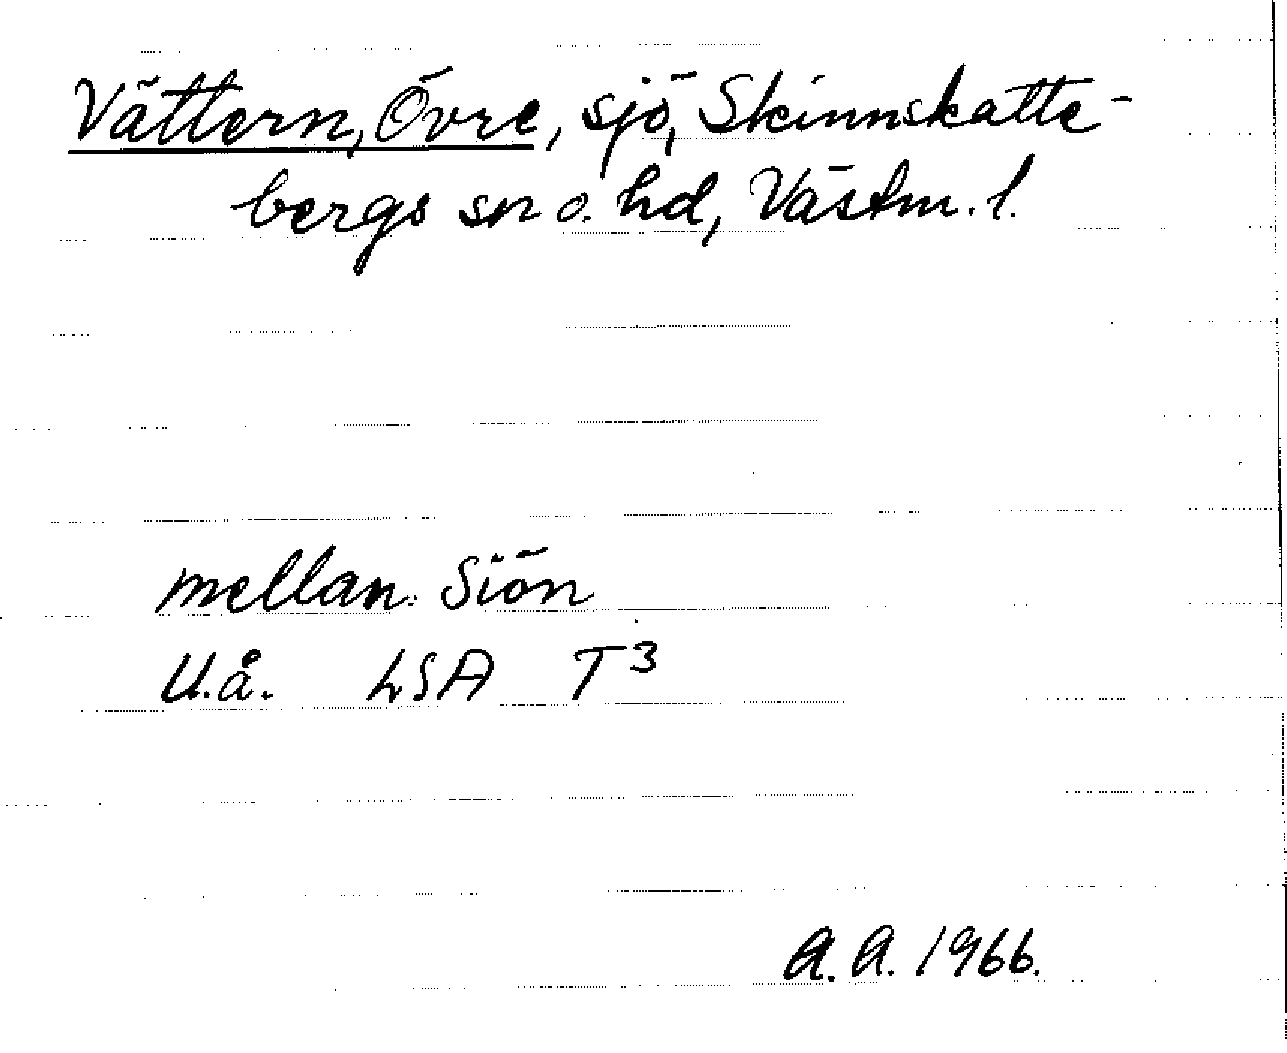 Vättern, Övre, sjö, Skinnskatte-
bergs sn o. hd, Västm. l.
mellan Siön
U.å. LSA T3
A.A. 1966.